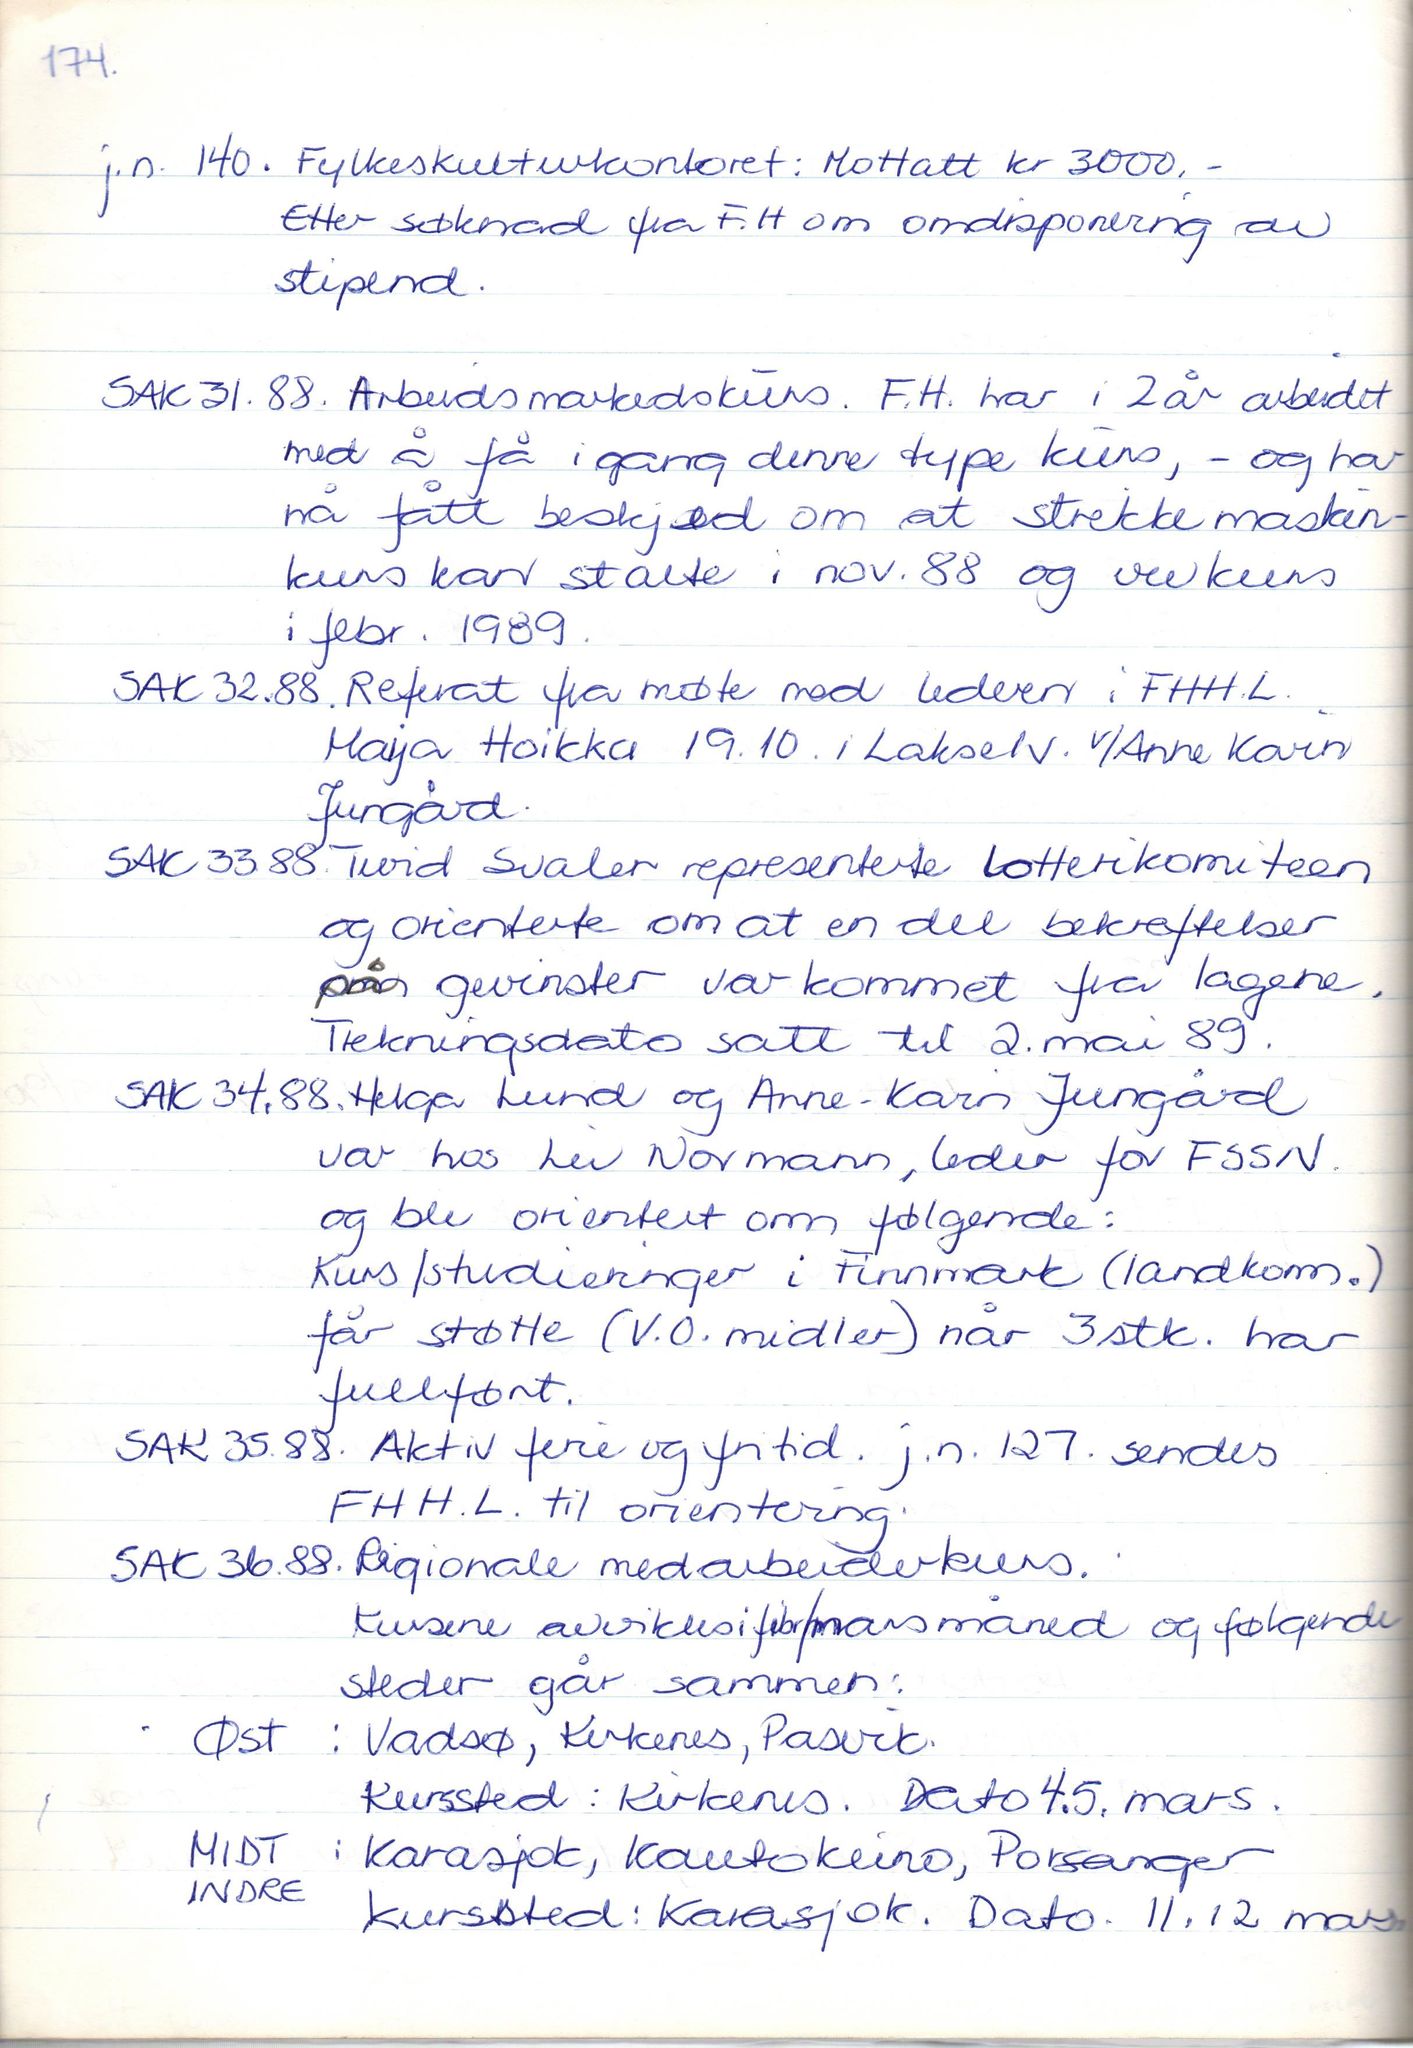 174.
j.n. 140. Fylkeskulturkontoret: Mottatt kr 3000,-
Etter søknad fra F.H om omdisponering av
stipend.
SAK 31.88. Arbeidsmarkedskurs. F.H. har i 2 år arbeidet
med å få igang denne type kurs, - og har
nå fått beskjed om at strikkemaskin-
kurs kan starte i nov. 88 og vevkurs
i febr. 1989.
SAK 32.88. Referat fra møte med lederen i FHH.L.
Maija Hoikka 19.10. i Lakselv. v/Anne Karin
Jungård.
SAK 33.88. Turid Svaler representerte Lotterikomiteen
og orienterte om at en del bekreftelser
på gevinster var kommet fra lagene.
Trekningsdato satt til 2. mai 89.
SAK 34.88. Helga Lund og Anne-Karin Jungård
var hos Liv Normann, leder for FSSN.
og ble orientert om følgende:
Kurs/studieringer i Finnmark (landkom.)
får støtte (V.O. midler) når 3 stk. har
fullført.
SAK 35.88. Aktiv ferie og fritid. j.n. 127. sendes
FHH.L. til orientering.
SAK 36.88. Regionale medarbeiderkurs.
Kursene avvikles i febr/mars måned og følgende
steder går sammen:
ØST : Vadsø, Kirkenes, Pasvik.
Kurssted: Kirkenes. Dato 4.5. mars.
MIDT : Karasjok, Kautokeino, Porsanger
INDRE
kurssted: Karasjok. Dato. 11.12 mars.